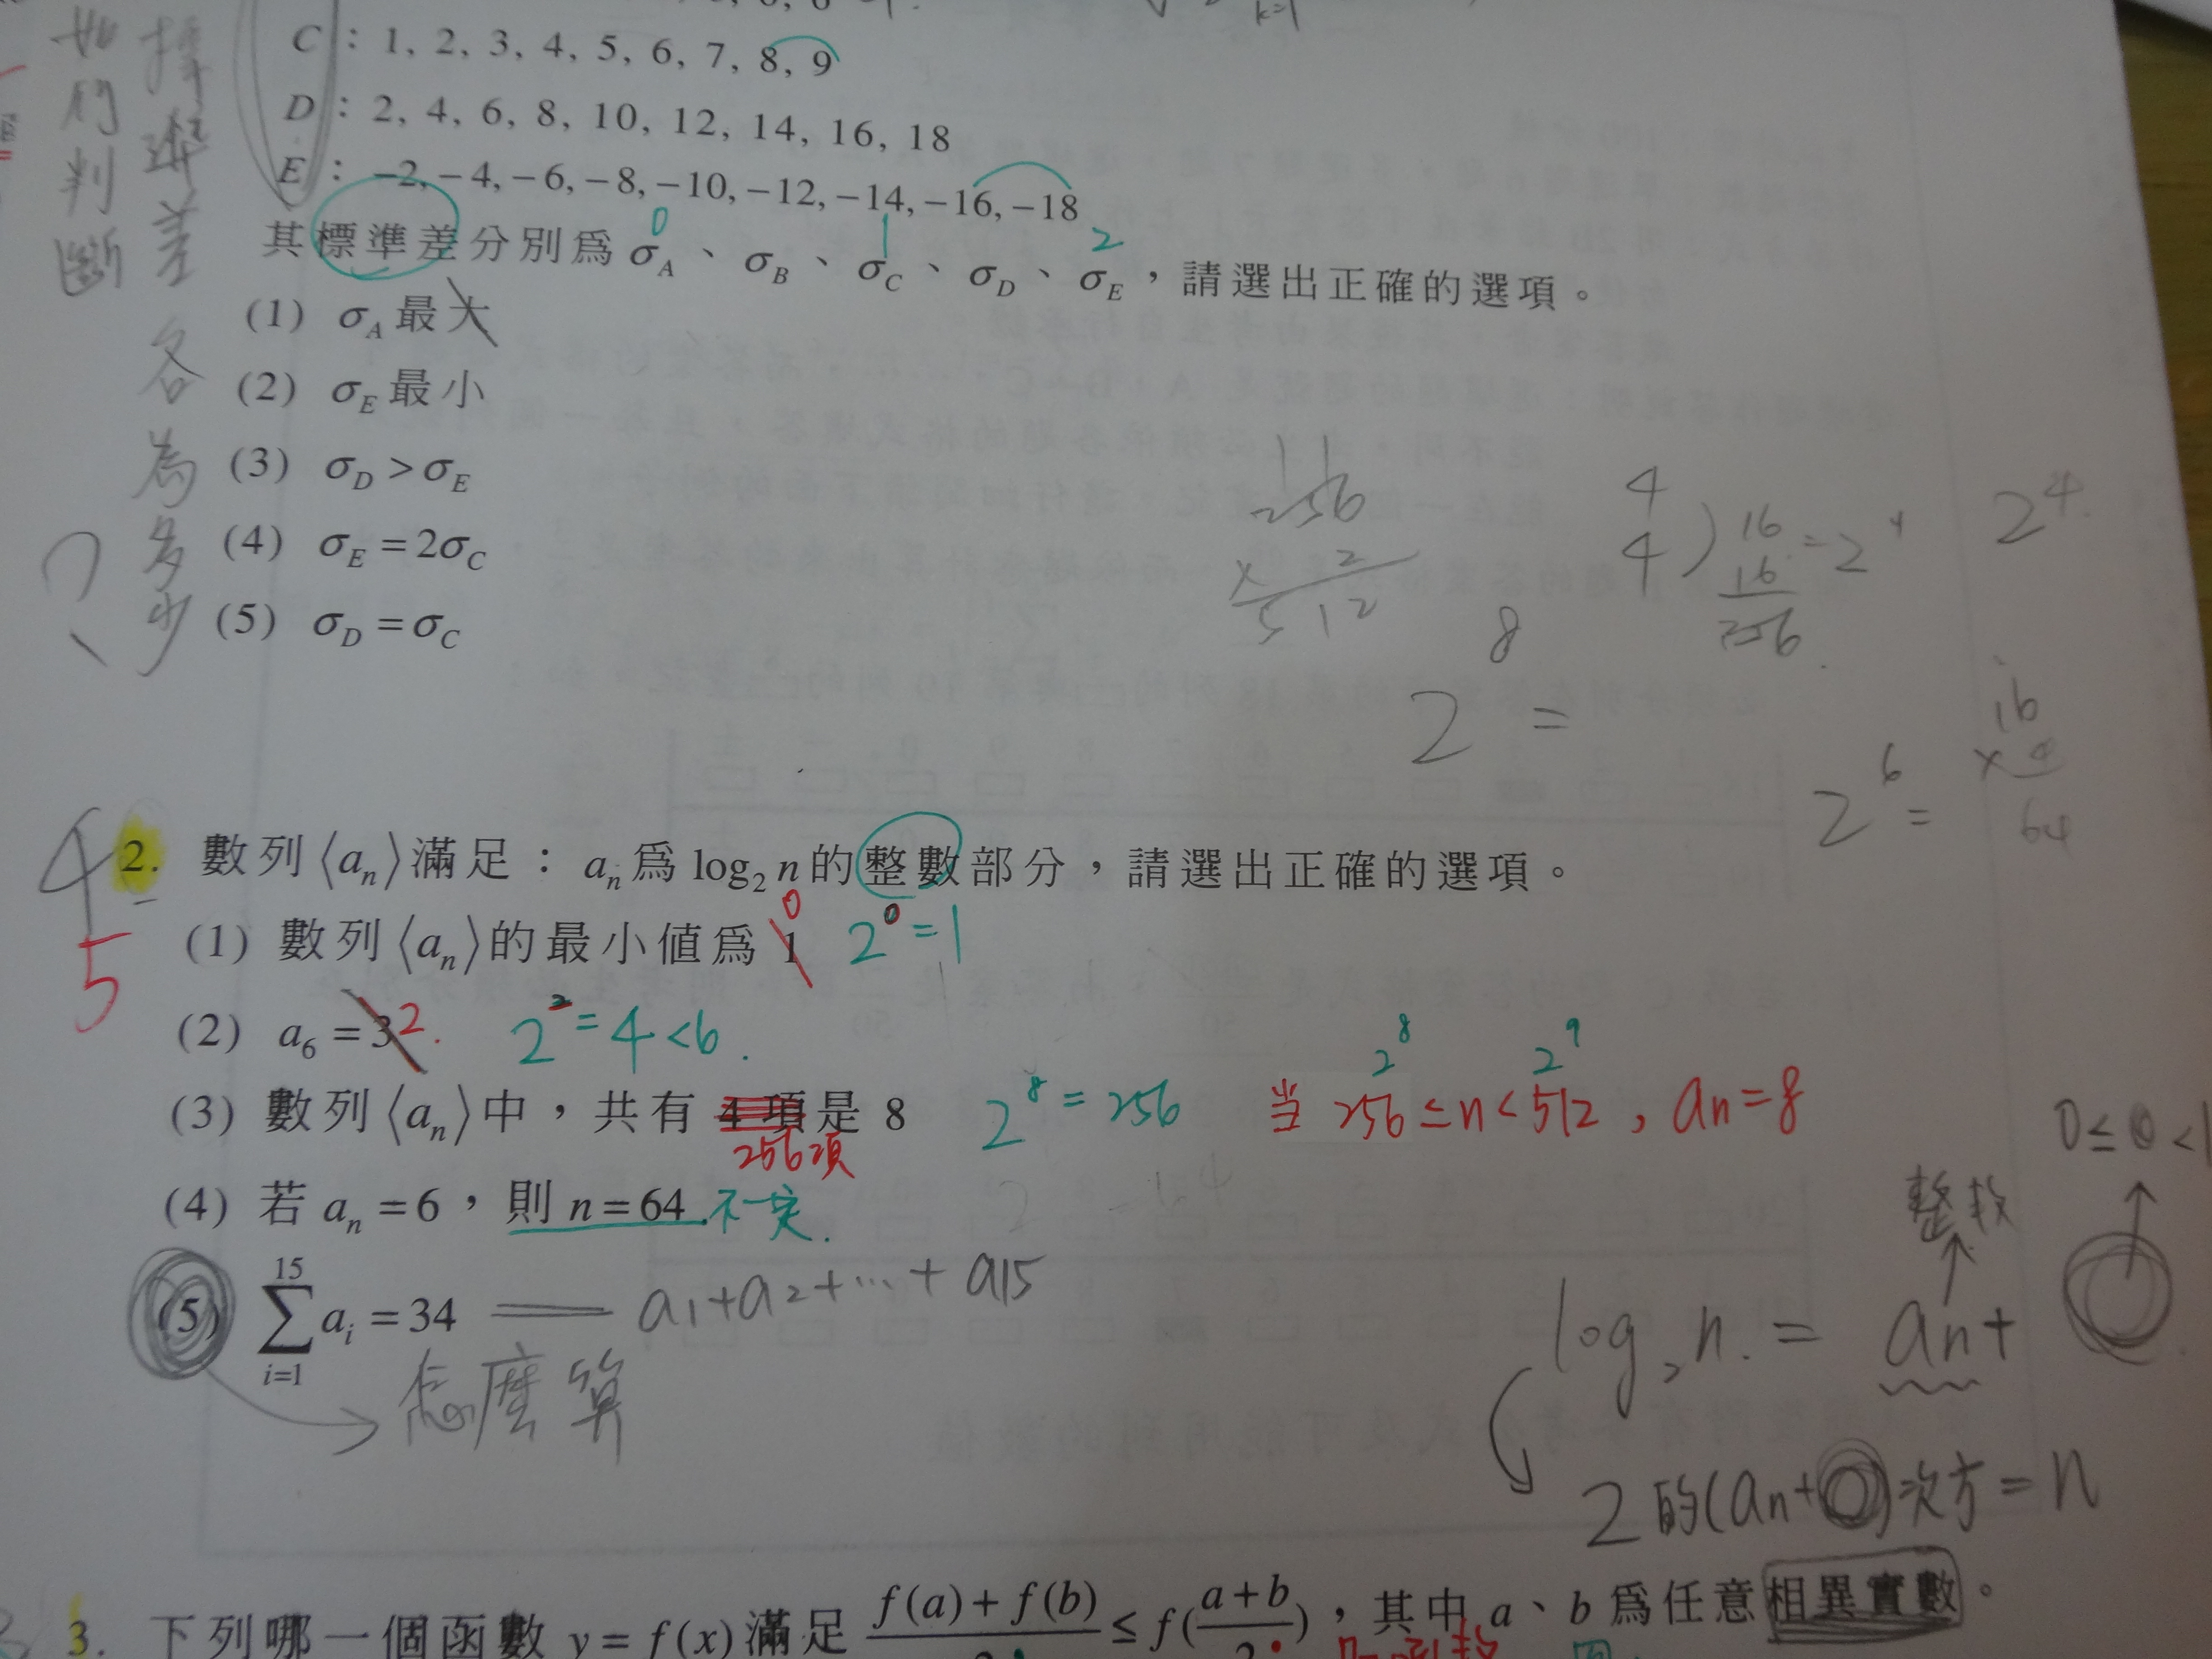 C : 1, 2, 3, 4, 5, 6, 7, 8, 9
D : 2, 4, 6, 8, 10, 12, 14, 16, 18
E : −2, −4, −6, −8, −10, −12, −14, −16, −18
0 1 2
其標準差分別為 σA 、 σB 、 σC 、 σD 、 σE ，請選出正確的選項。
(1) σA 最大
(2) σE 最小
(3) σD > σE
(4) σE = 2σC
(5) σD = σC
標準差各為多少
如何判斷
?
256
× 2
512
4
4 ) 16 = 2^4
16
256
2^4
2^8 =
16
× 4
64
2^6 =
4
5
2. 數列⟨an⟩滿足： an 為 log2 n 的整數部分，請選出正確的選項。
(1) 數列⟨an⟩的最小值為 1 0 2^0 = 1
(2) a6 = 3 2. 2^2 = 4 < 6 .
2^8 2^9
(3) 數列⟨an⟩中，共有 4 項是 8 2^8 = 256 当 256 ≤ n < 512 , an = 8
256項
(4) 若 an = 6 ，則 n = 64 不一定.
(5) 15∑i=1 ai = 34 a1 + a2 + ... + a15
怎麼算
0 ≤ < 1
整数
log2 n. = an +
2的(an + )次方 = n
3. 下列哪一個函數 y = f(x) 滿足 (f(a) + f(b))/2 ≤ f((a + b)/2) ，其中 a 、 b 為任意相異實數。